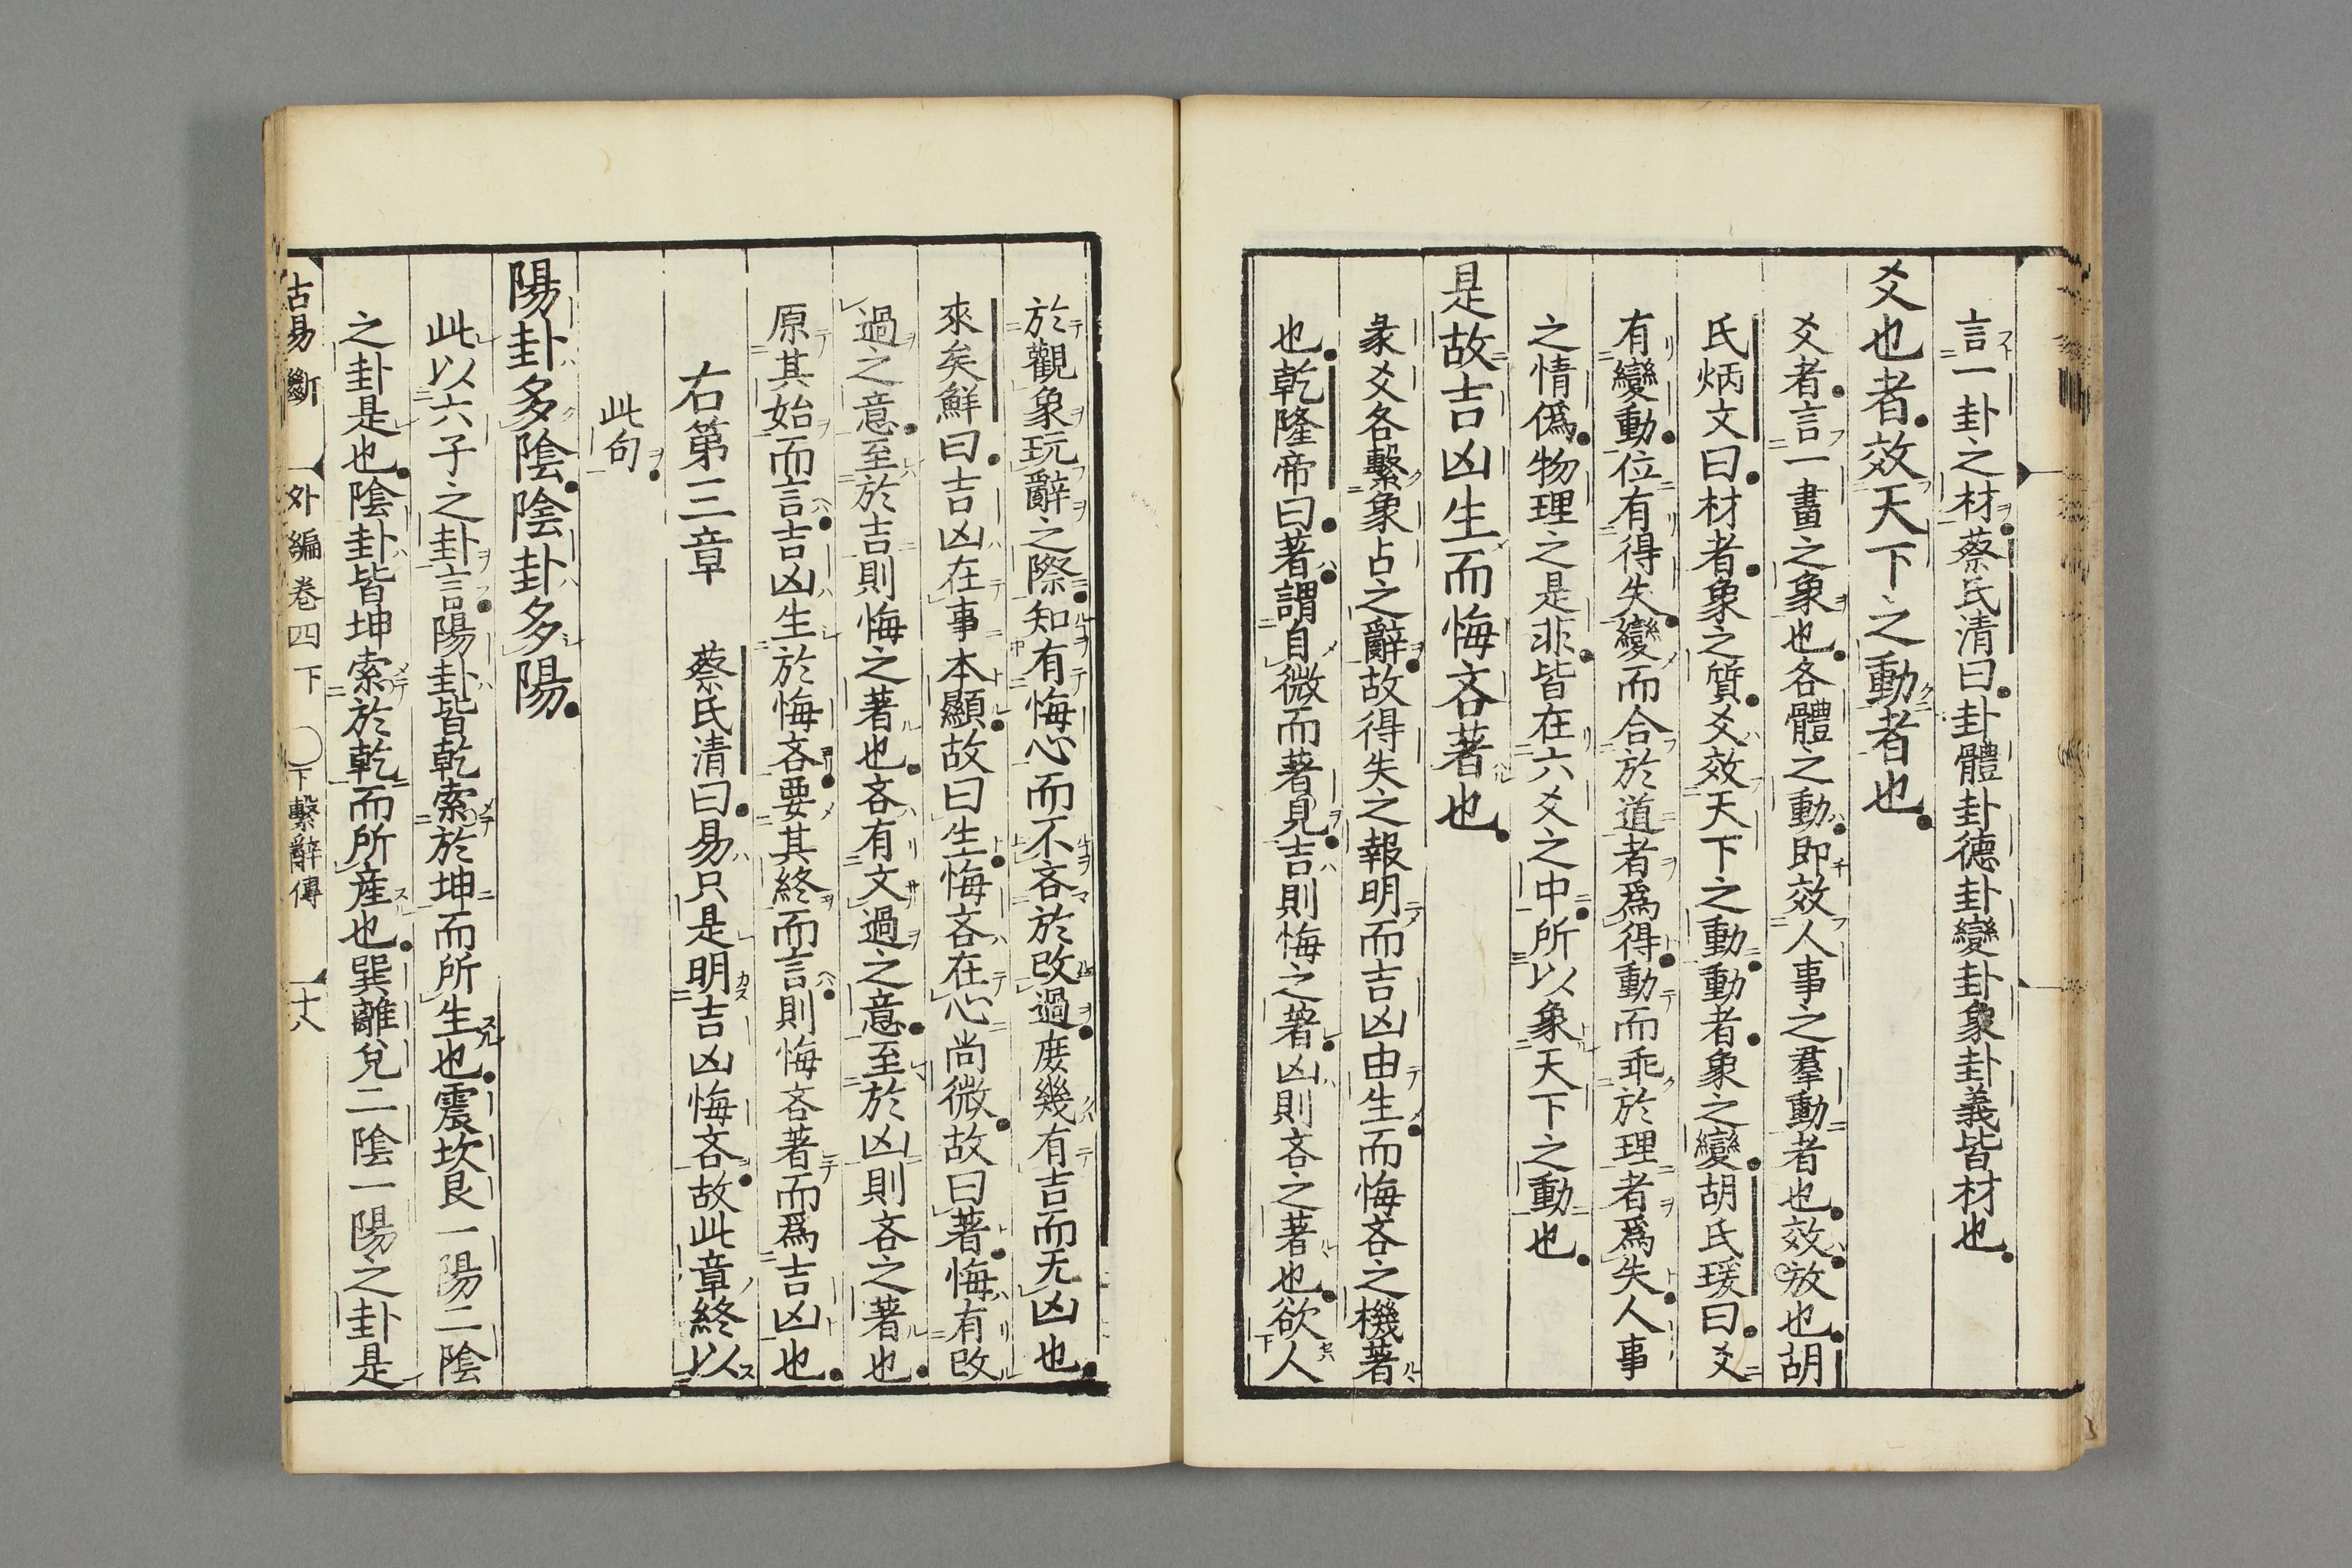 言一卦之材蔡氏清曰卦體卦德卦變卦象卦義皆材也
爻也者效天下之動者也
爻者言一畫之象也各體之動即效人事之羣動者也效放也胡
氏炳文曰材者象之質爻效天下之動動者象之變胡氏瑗曰爻
有變動位有得失變而合於道者爲得動而乖於理者爲失人事
之情僞物理之是非皆在六爻之中所以象天下之動也
是故吉凶生而悔吝著也
彖爻各繫象占之辭故得失之報明而吉凶由生而悔吝之機著
也乾隆帝曰著謂自微而著見吉則悔之著凶則吝之著也欲人
於觀象玩辭之際知有悔心而不吝於改過庶幾有吉而无凶也
來矣鮮曰吉凶在事本顯故曰生悔吝在心尚微故曰著悔有改
過之意至於吉則悔之著也吝有文過之意至於凶則吝之著也
原其始而言吉凶生於悔吝要其終而言則悔吝著而爲吉凶也
右第三章 蔡氏清曰易只是明吉凶悔吝故此章終以
此句
陽卦多陰陰卦多陽
此以六子之卦言陽卦皆乾索於坤而所生也震坎艮一陽二陰
之卦是也陰卦皆坤索於乾而所産也巽離兌二陰一陽之卦是
古易斷 外編卷四下 〇下繫辭傳 十八